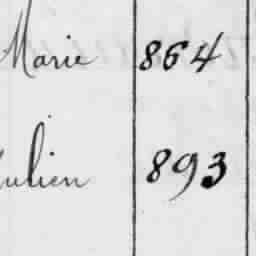 Marie 864
Julien 893